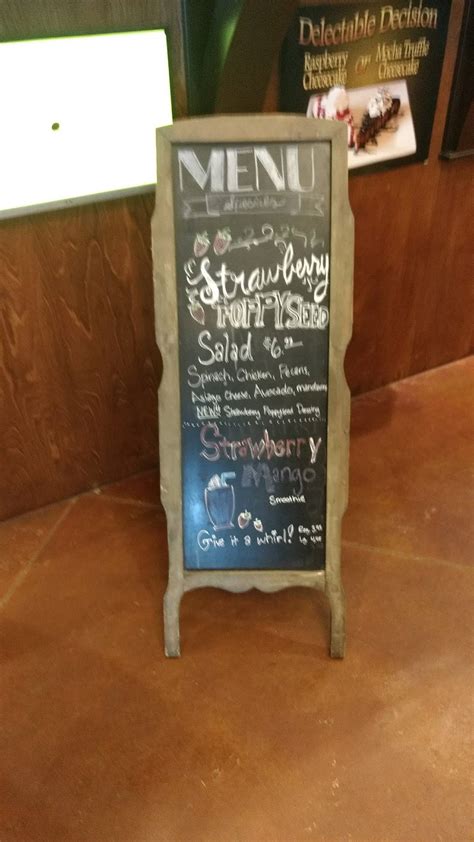 Delectable Decision
Raspberry Cheesecake OR Mocha Truffle Cheesecake
MENU
Strawberry
POPPYSEED
Salad $6.
Spinach, Chicken, Pecans,
Asiago Cheese, Avocado,
NEW! Strawberry Poppyseed
Strawberry
Mango
Smoothie
Give it a whirl! Reg